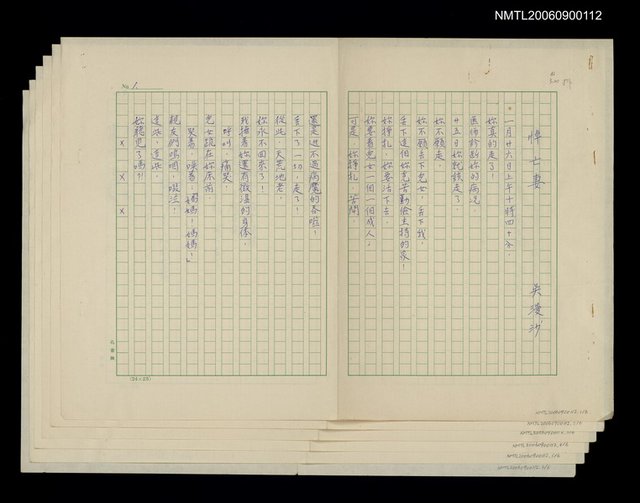 NMTL20060900112
悼亡妻
吳漫沙
一月廿六日上午十時四十分,
妳真的走了!
医师診断妳的病况,
廿五日妳就該走了,
妳不願走,
妳不願丟下兒女,丟下我,
丟下這個妳克苦勤儉支持的家!
妳掙扎,妳要活下去,
妳要看兒女一個一個成人,
可是,妳掙扎,苦鬥,
還是逃不過病魔的吞噬!
丟下了一切,走了!
從此,天荒地老,
妳永不回來了!
我摟着妳還有微溫的身体,
呼叫,痛哭,
兒女跪在妳床前
哭着,喊着,媽媽!媽媽!
親友們嗚咽,啜泣!
這些,這些
妳聽見了嗎?!
x x x
No 1.
(24×25)
NMTL20060900112.1/6
NMTL20060900112.2/6
NMTL20060900112.3/6
NMTL20060900112.4/6
NMTL20060900112.5/6
NMTL20060900112.6/6